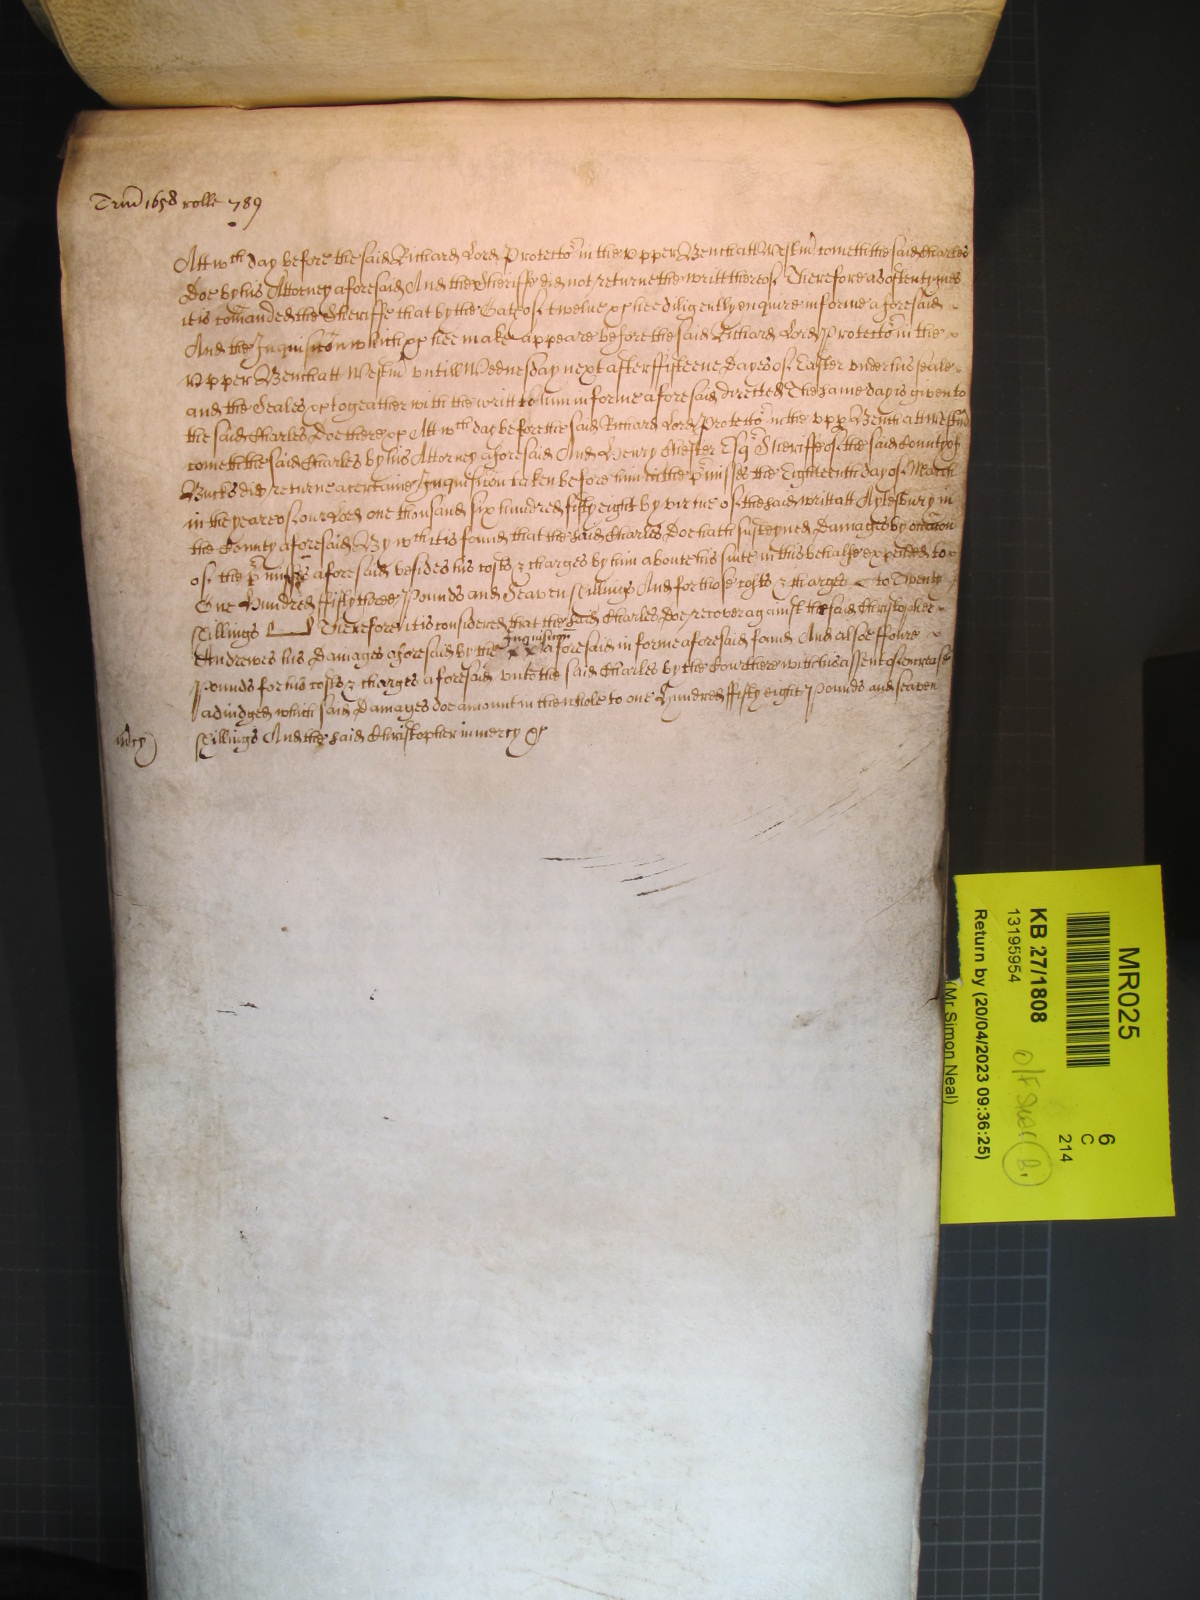 Trin 1658 rolle 789
Att wch day before the said Richard Lord Protector in the vpper Bench att Westm cometh the said Charles
Doe by his Attorney aforesaid And the Sheriffe did not returne the writt thereof Therefore as oftentymes
it is comanded the Sheriffe that by the Oath of twelue &c hee diligently enquire in forme aforesaid
And the Inquisicon which &c hee make appeare before the said Richard Lord Protector in the
vpper Bench att Westm vntill Wednesday next after fifteene Dayes of Easter vnder his seale
and the Seales &c togeather with the writt to him in forme aforesaid directed The same day is given to
the said Charles Doe there &c Att wch day before the said Richard Lord Protector in the vpp Bench att Westm
cometh the said Charles by his Attorney aforesaid And Henry Chester Esqr Sheriffe of the said County of
Bucks did returne a certaine Inquisicon taken before him in the pmisses the Eighteenth day of March
in the yeare of our Lord one thousand six hundred fifty eight by virtue of the said writt att Aylesbury in
the County aforesaid By wch it is found that the said Charles Doe hath susteyned Damages by occacon
of the pmisses aforesaid besides his costs & charges by him about his suite in this behalfe expended to
One Hundred ffifty three Pounds and Seaven shillings And for those costs & charges to Twenty
shillings Therefore it is considered that the said Charles Doe recover against the said Christopher
Andrewes his Damages aforesaid by the Inquisicon aforesaid in forme aforesaid found And alsoe ffoure
Pounds for his costs & charges aforesaid vnto the said Charles by the Court here with his assent of increase
adiudged which said Damages doe amount in the whole to one Hundred ffifty eight Pounds and seaven
mcy) shillings And the said Christopher in mercy &c
MR025
KB 27/1808
13195954
Return by (20/04/2023 09:36:25)
(Mr Simon Neal)
6
C
214